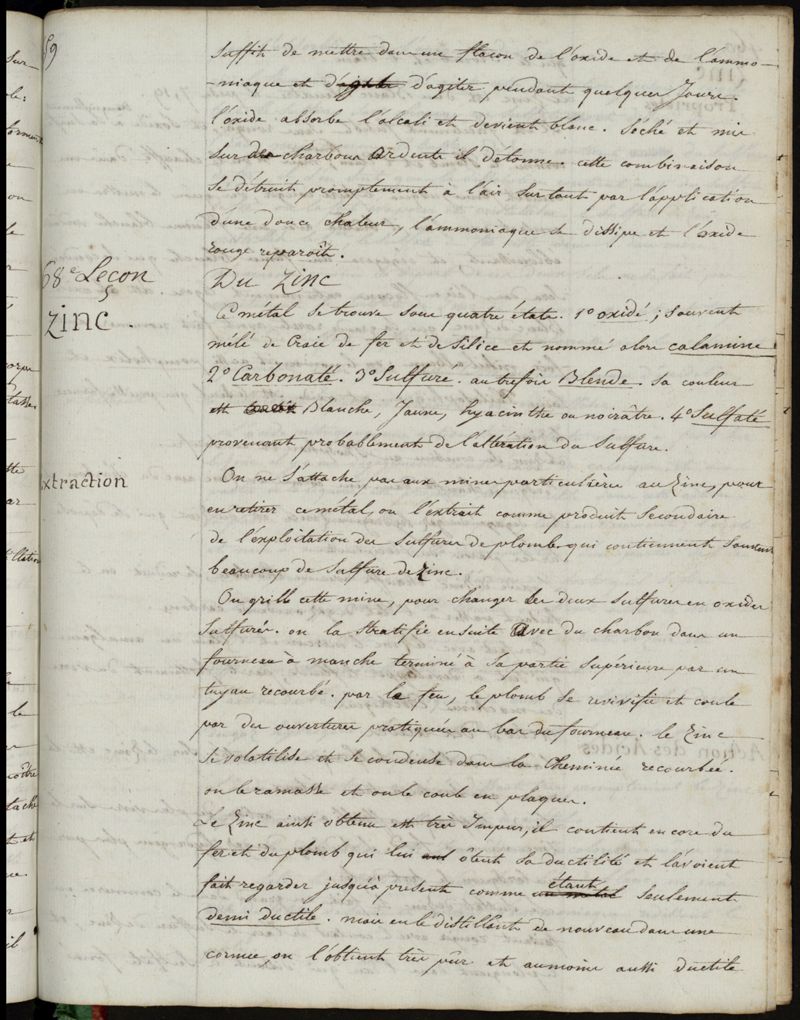 59
suffit de mettre dans un flacon de l'oxide et de l'ammo-
-niaque et d'agiter d'agiter pendant quelques Jours.
l'oxide absorbe l'alcali et devient blanc. Séché et mis
sur des charbons ardents il détonne. cette combinaison
se détruit promptement à l'air surtout par l'application
d'une douce chaleur, l'ammoniaque se dissipe et l'oxide
rouge reparoit.
68e Leçon
Du Zinc
Zinc.
Ce métal se trouve sous quatre états. 1o oxidé; souvent
mélé de Craie de fer et de Silice et nommé alors calamine
2o Carbonaté. 3o Sulfuré. autrefois Blende. sa couleur
est Blanche, Jaune, hyacinthe ou noirâtre. 4o Sulfaté
provenant probablement de l'altération du Sulfure.
extraction
On ne s'attache pas aux mines particulières au Zinc, pour
en retirer ce métal, on l'extrait comme produit Secondaire
de l'exploitation des sulfures de plomb qui contiennent Souvent
beaucoup de Sulfure de Zinc.
On grille cette mine, pour changer les deux sulfures en oxides
Sulfurés. on la stratifie ensuite avec du charbon dans un
fourneau à manche terminé à sa partie supérieure par un
tuyau recourbé. par le feu, le plomb se revivifie et coule
par des ouvertures pratiquées au bas du fourneau. le Zinc
se volatilise et se condense dans la Cheminée recourbée.
on le ramasse et on le coule en plaques.
Le Zinc ainsi obtenu est très Impur, il contient encore du
fer et du plomb qui lui ôtent sa ductilité et l'avoient
fait regarder jusqu'à present comme étant un métal seulement
demi ductile. mais en le distillant de nouveau dans une
cornue, on l'obtient très pûr et au moins aussi ductile